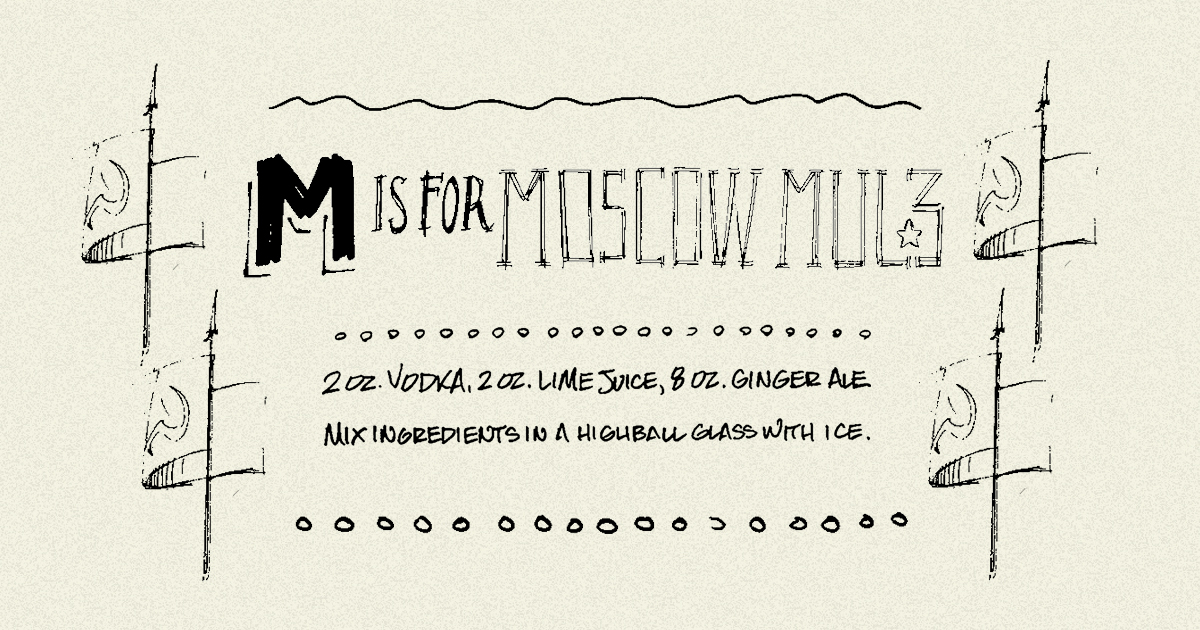 M IS FOR MOSCOW MULE
2 OZ. VODKA, 2 OZ. LIME JUICE, 8 OZ. GINGER ALE
MIX INGREDIENTS IN A HIGHBALL GLASS WITH ICE.